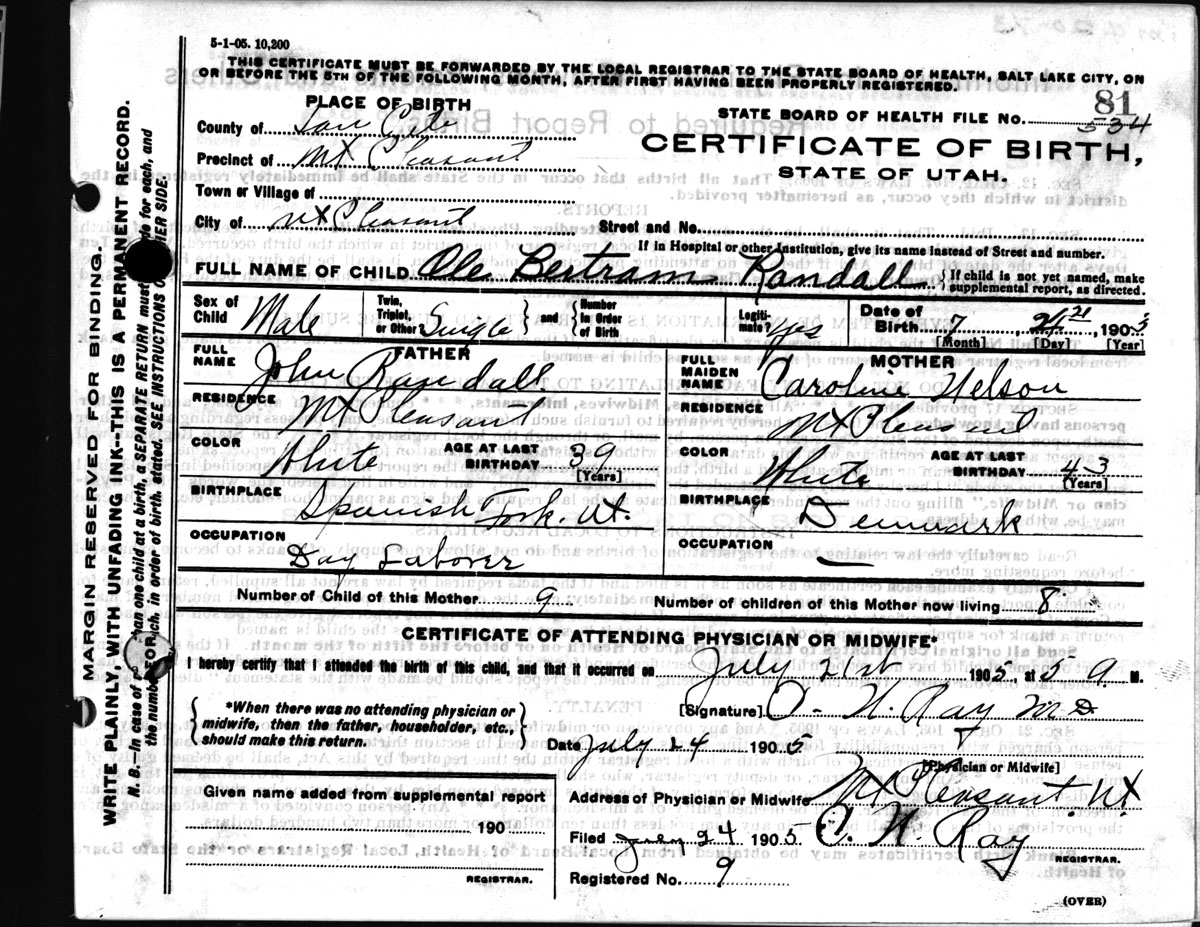 5-1-05. 10,200
THIS CERTIFICATE MUST BE FORWARDED BY THE LOCAL REGISTRAR TO THE STATE BOARD OF HEALTH, SALT LAKE CITY, ON
OR BEFORE THE 5TH OF THE FOLLOWING MONTH, AFTER FIRST HAVING BEEN PROPERLY REGISTERED.
PLACE OF BIRTH
County of San Pete
Precinct of Mt Pleasant
Town or Village of
City of Mt Pleasant
81
STATE BOARD OF HEALTH FILE NO. 534
CERTIFICATE OF BIRTH,
STATE OF UTAH.
Street and No.
If in Hospital or other Institution, give its name instead of Street and number.
FULL NAME OF CHILD Ole Bertram Randall { If child is not yet named, make supplemental report, as directed.
Sex of Child Male
Twin, Triplet, or Other Single } and { Number in Order of Birth
Legitimate? Yes
Date of Birth 7 21, 1905
[Month] [Day] [Year]
FATHER
FULL NAME John Randall
RESIDENCE Mt Pleasant
COLOR White
AGE AT LAST BIRTHDAY 39
[Years]
BIRTHPLACE Spanish Fork. Ut.
OCCUPATION
Day Laborer
MOTHER
FULL MAIDEN NAME Caroline Nelson
RESIDENCE
Mt Pleasant
COLOR White
AGE AT LAST BIRTHDAY 43
[Years]
BIRTHPLACE Denmark
OCCUPATION —
Number of Child of this Mother 9
Number of children of this Mother now living 8
CERTIFICATE OF ATTENDING PHYSICIAN OR MIDWIFE*
I hereby certify that I attended the birth of this child, and that it occurred on July 21st 1905, at 5 a M.
{ *When there was no attending physician or midwife, then the father, householder, etc., should make this return. }
[Signature] O. N. Ray MD
Date July 24 1905
[Physician or Midwife]
Address of Physician or Midwife Mt Pleasant Ut
Given name added from supplemental report
190
REGISTRAR.
Filed July 24 1905 O. N. Ray
REGISTRAR.
Registered No. 9
(OVER)
MARGIN RESERVED FOR BINDING.
WRITE PLAINLY, WITH UNFADING INK--THIS IS A PERMANENT RECORD.
N. B.—In case of more than one child at a birth, a SEPARATE RETURN must
de for each, and
the number
ch, in order of birth, stated. SEE INSTRUCTIONS O
HER SIDE.